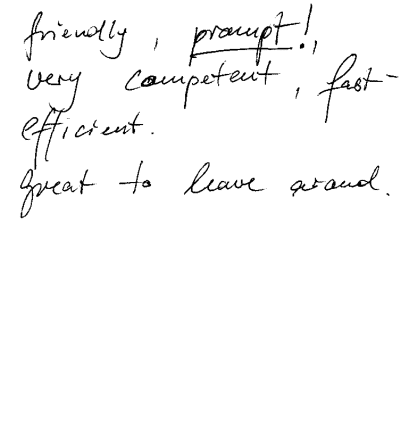 friendly, prompt!,
very competent, fast-
efficient.
great to leave around.